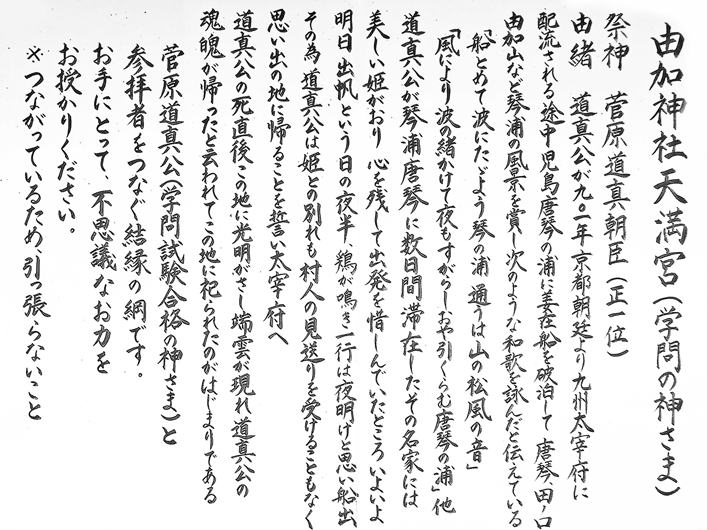 由加神社天満宮(学問の神さま)
祭神 菅原道真朝臣(正一位)
由緒 道真公が九〇一年京都朝廷より九州太宰府に
配流される途中児島唐琴の浦に着在船を破泊して 唐琴、田ノ口
由加山など琴浦の風景を賞し次のような和歌を詠んだと伝えている
「船とめて波にたゞよう琴の浦 通うは山の松風の音」
「風により波の緒かけて夜もすがらしおや引くらむ唐琴の浦」他
道真公が琴浦唐琴に数日間滞在したその名家には
美しい姫がおり 心を残して出発を惜しんでいたところいよいよ
明日 出帆という日の夜半、鶏が鳴き一行は夜明けと思い船出
その為 道真公は姫との別れも 村人の見送りを受けることもなく
思い出の地に帰ることを誓い太宰府へ
道真公の死直後この地に光明がさし端雲が現れ道真公の
魂魄が帰ったと云われてこの地に祀られたのがはじまりである
菅原道真公(学問試験合格の神さま)と
参拝者をつなぐ結縁の綱です。
お手にとって、不思議なお力を
お授かりください。
※つながっているため、引っ張らないこと